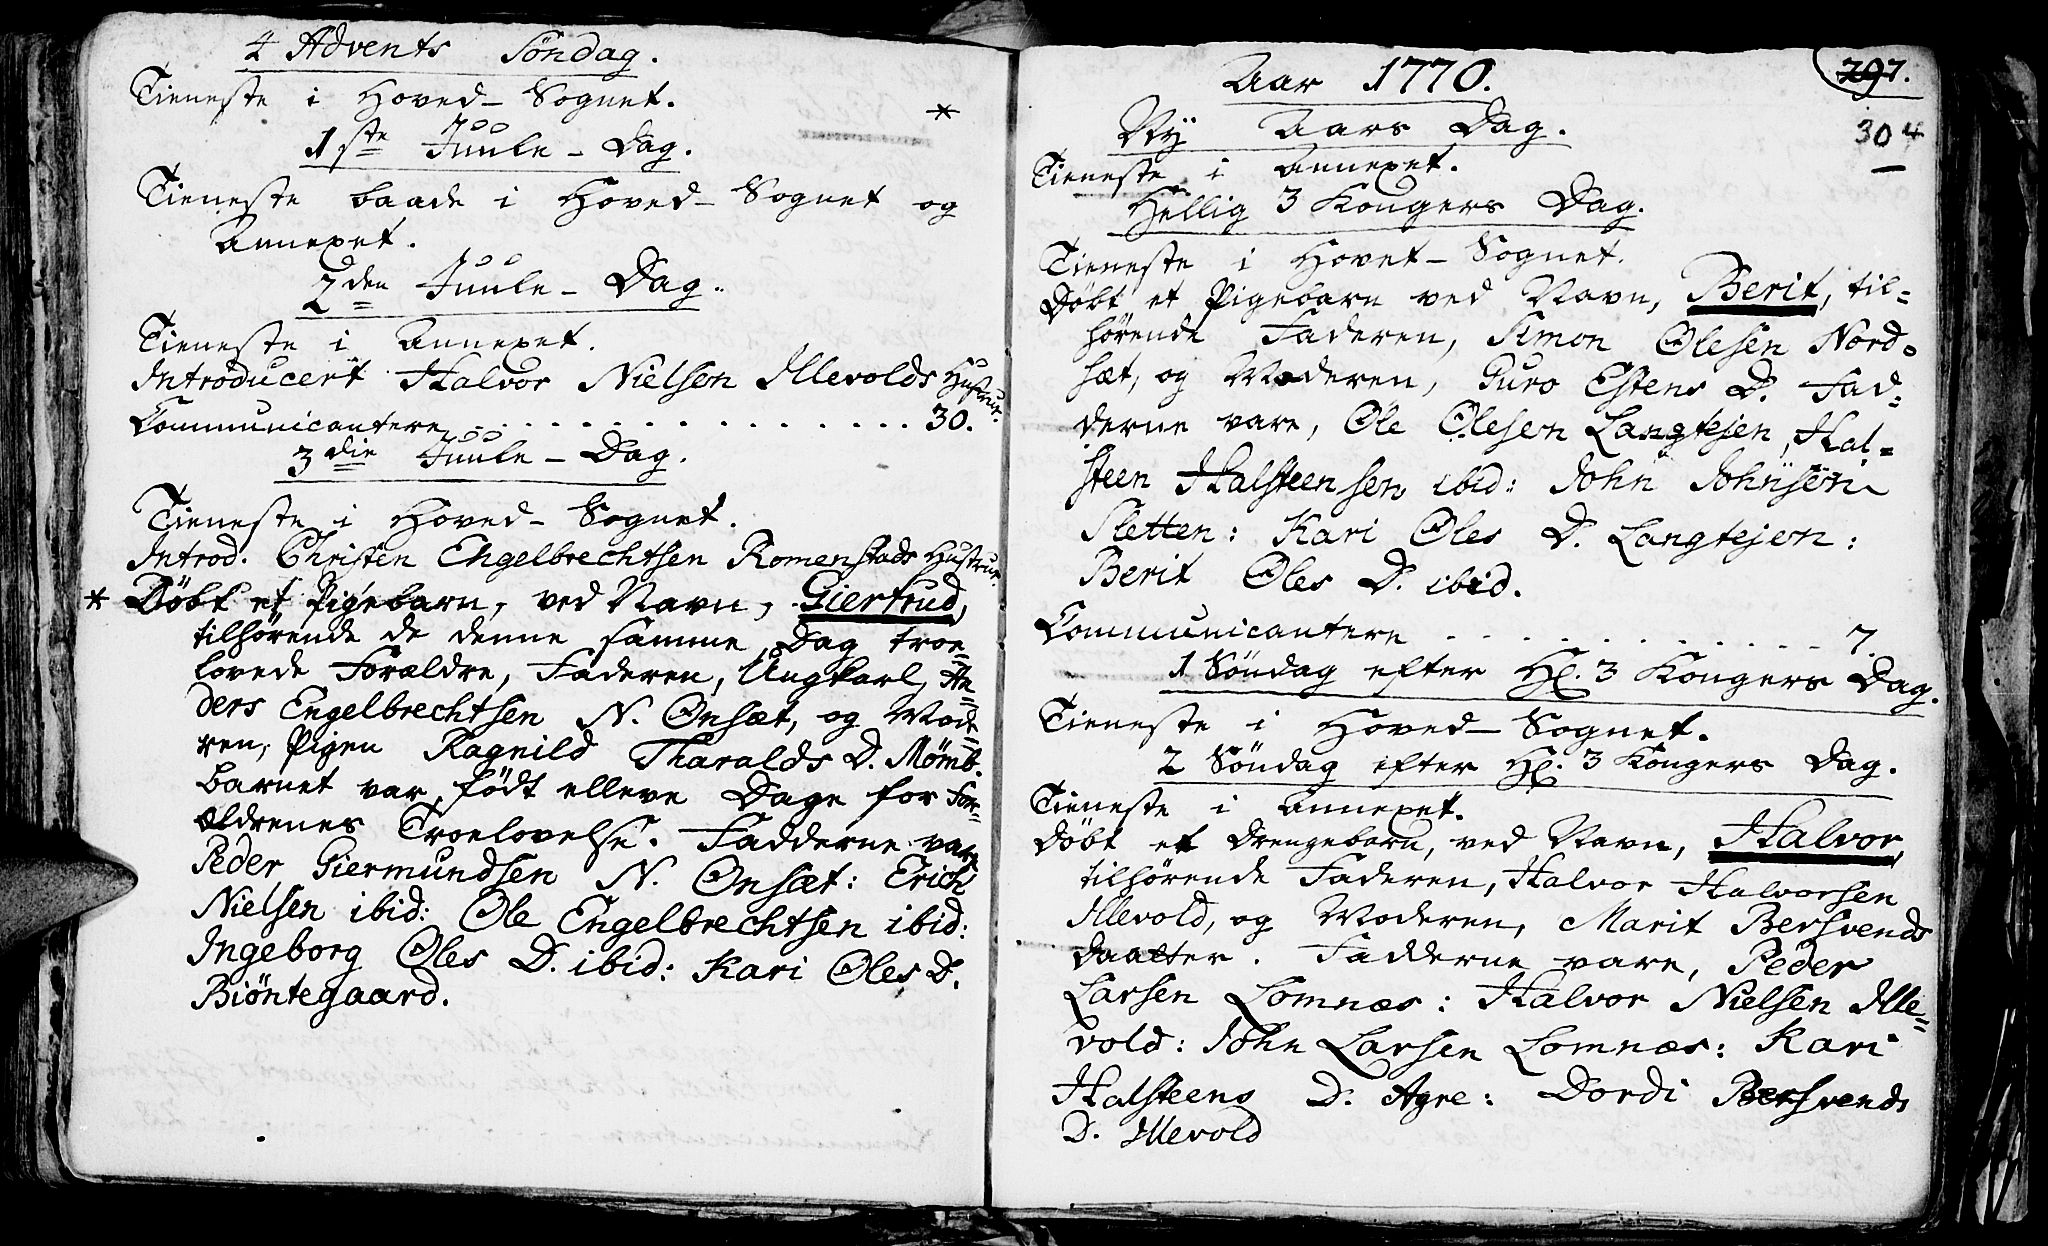 4 Advents Söndag.
Tieneste i Hoved-Sognet.
*
1ste Juule-Dag.
Tieneste baade i Hoved-Sognet og
Annexet.
2den Juule-Dag.
Tieneste i Annexet.
Introducert Halvor Nielsen Illevolds Hustrue.
Communicantere . . . . . . . . . . . . . . . 30.
3die Juule-Dag.
Tieneste i Hoved-Sognet.
Introd. Christen Engelbrechtsen Romenstads Hustrue.
* Döbt et Pigebarn, ved Navn, Giertrud,
tilhörende de denne samme Dag troe=
lovede Forældre, Faderen, Ungkarl, An=
ders Engelbrechtsen N. Ønsæt, og Mode=
ren, Pigen Ragnild Tharalds D. Mømb.
Barnet var födt elleve Dage for For=
ældrenes Troelovelse. Fadderne vare
Peder Giermundsen N. Ønsæt: Erich
Nielsen ibid: Ole Engelbrechtsen ibid:
Ingeborg Oles D. ibid: Kari Oles D.
Biöntegaard.
297.
304
Aar 1770.
Ny Aars Dag.
Tieneste i Annexet.
Hellig 3 Kongers Dag.
Tieneste i Hovet-Sognet.
Döbt et Pigebarn ved Navn, Berit, til=
hörende Faderen, Simon Olesen Nord=
sæt, og Moderen, Guro Estens D. Fad=
derne vare, Ole Olesen Langtejen, Hal=
steen Halsteensen ibid: John Johnsen
Sletten: Kari Oles D. Langtejen:
Berit Oles D. ibid.
Communicantere . . . . . . . . . . . 7.
1 Söndag efter Hl. 3 Kongers Dag.
Tieneste i Hoved-Sognet.
2 Söndag efter Hl. 3 Kongers Dag.
Tieneste i Annexet.
Döbt et Drengebarn, ved Navn, Halvor,
tilhörende Faderen, Halvor Halvorsen
Illevold, og Moderen, Marit Bersvends
Daatter. Fadderne vare, Peder
Larsen Lomnæs: Halvor Nielsen Ille=
vold: John Larsen Lomnæs: Kari
Halsteens D. Agre: Dordi Bersvends
D. Illevold